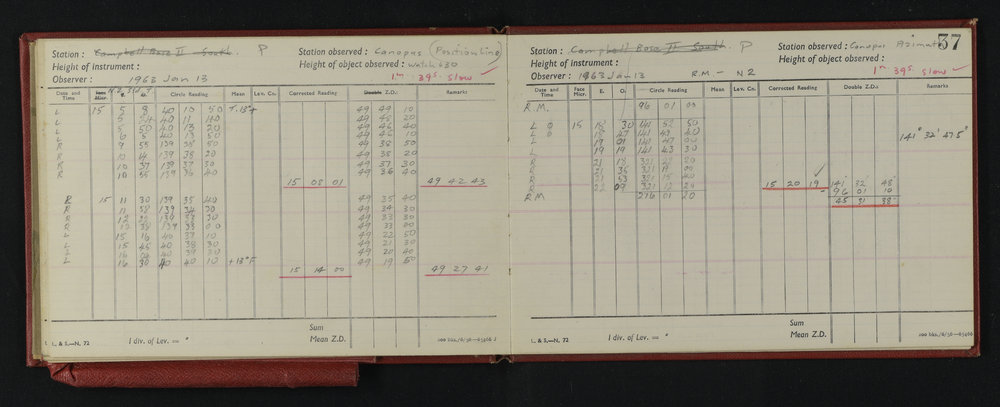 Station : Campbell Base II South. P Station observed : Canopus (Position line)
Height of instrument : Height of object observed : Watch 630
Observer : 1963 Jan 13 1m 39s. slow ✓
Date and Time Face Micr. Circle Reading Mean Lev. Co. Corrected Reading Double Z.D. Remarks
L 15 5 40 10 50 49 49 10
L 5 40 11 49 48 20
L 5 50 40 13 20 49 46 40
L 6 40 13 50 49 46 10
R 9 55 139 38 50 49 38 50
R 10 14 139 38 20 49 38 20
R 10 37 139 37 30 49 37 30
R 10 55 139 36 40 49 36 40
15 08 01 49 42 43
R 15 11 30 139 35 40 49 35 40
R 11 139 34 30 49 34 30
R 12 139 33 30 49 33 30
R 12 38 139 33 00 49 33 00
L 15 16 40 37 10 49 22 50
L 15 46 40 38 30 49 21 30
L 16 40 39 20 49 20 40
L 16 30 40 40 10 +13°F 49 19 50
15 14 00 49 27 41
Sum
L. & S.—N. 72 1 div. of Lev. = " Mean Z.D.
37
Station : Campbell Base II South. P Station observed : Canopus Azimuth
Height of instrument : Height of object observed :
Observer : 1963 Jan 13 R.M — N2 1m 39s. slow ✓
Date and Time Face Micr. E. O. Circle Reading Mean Lev. Co. Corrected Reading Double Z.D. Remarks
R.M. 96 01 00
L 15 18 30 141 52 50
L 18 47 141 49 40
L 19 01 141 47 00
L 19 19 141 43 30 141° 32' 47.5"
R 21 18 321
R 21 36 321
R 21 53 321 15 40
R 22 09 321 12 15 20 19 ✓ 141° 32' 48"
RM 276 01 20 96 01 10
45 31 38
Sum
L. & S.—N. 72 1 div. of Lev. = " Mean Z.D.